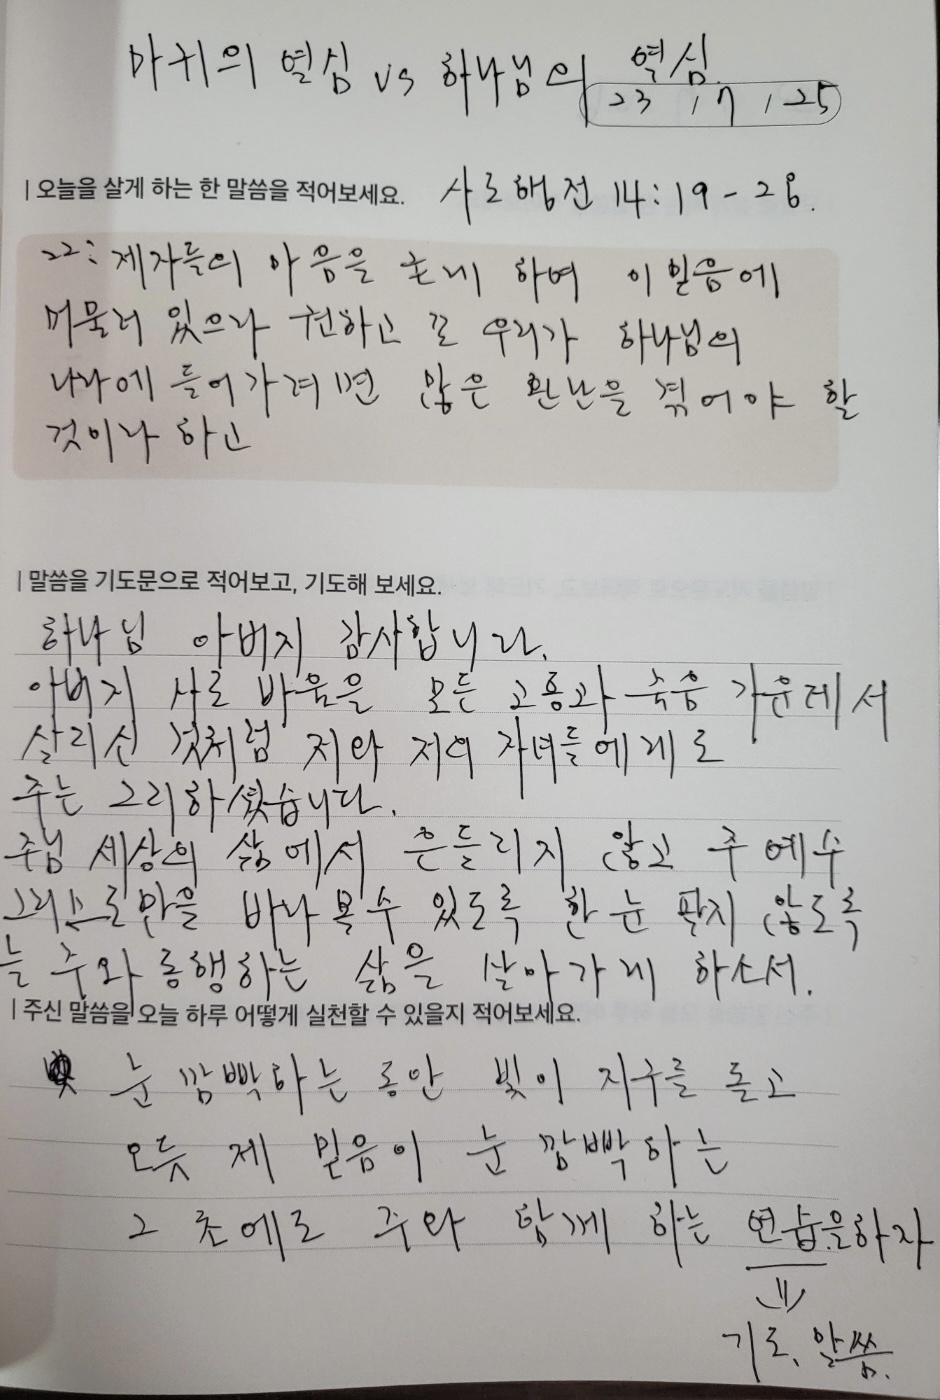 마귀의 열심 vs 하나님의 열심
23, 7, 25
| 오늘을 살게 하는 한 말씀을 적어보세요. 사도행전 14:19-28.
22: 제자들의 마음을 굳게 하여 이 믿음에
머물러 있으라 권하고 또 우리가 하나님의
나라에 들어가려면 많은 환난을 겪어야 할
것이라 하고
| 말씀을 기도문으로 적어보고, 기도해 보세요.
하나님 아버지 감사합니다.
아버지 사도 바울을 모든 고통과 죽음 가운데서
살리신 것처럼 저와 저의 자녀들에게도
주는 그리하셨습니다.
주님 세상의 삶에서 흔들리지 않고 주 예수
그리스도만을 바라볼수 있도록 한 눈 팔지 않도록
늘 주와 동행하는 삶을 살아가게 하소서.
| 주신 말씀을 오늘 하루 어떻게 실천할 수 있을지 적어보세요.
눈 깜빡하는 동안 빛이 지구를 돌고
오듯 제 믿음이 눈 깜빡하는
그 초에도 주와 함께 하는 연습을하자
기도, 말씀.